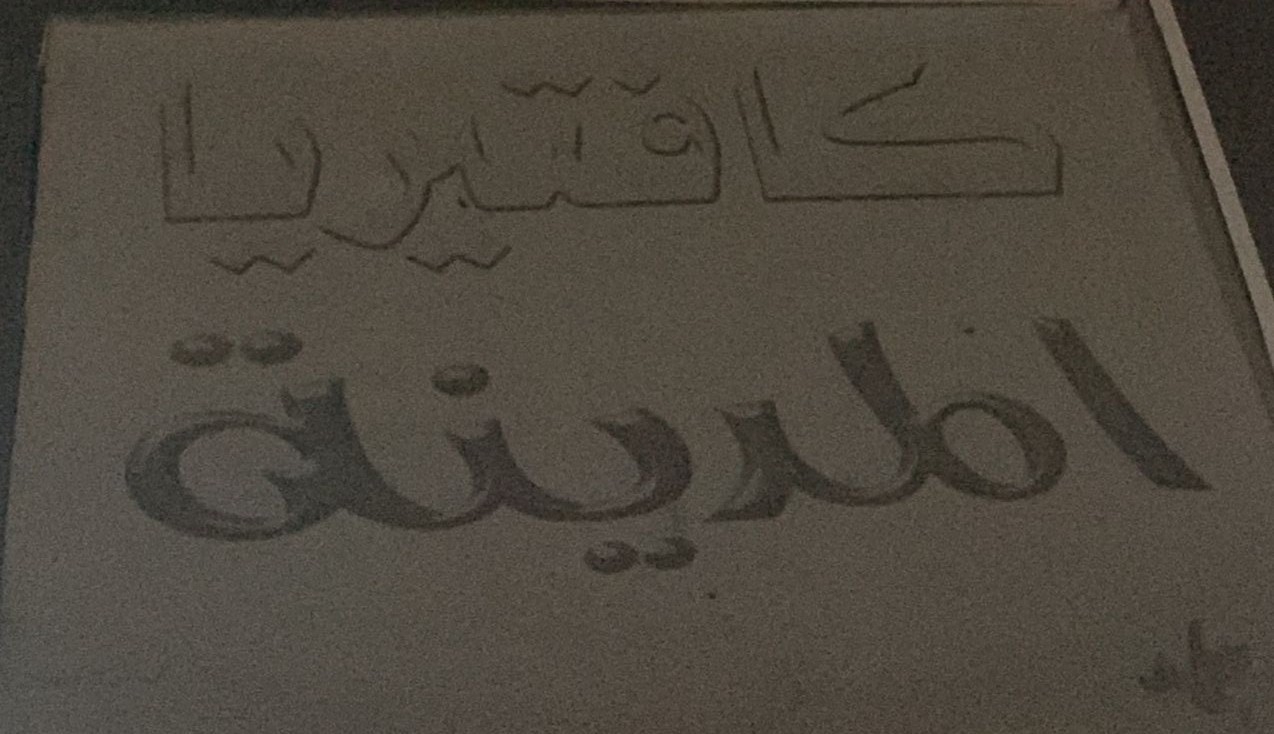 كافتيريا
المدينة